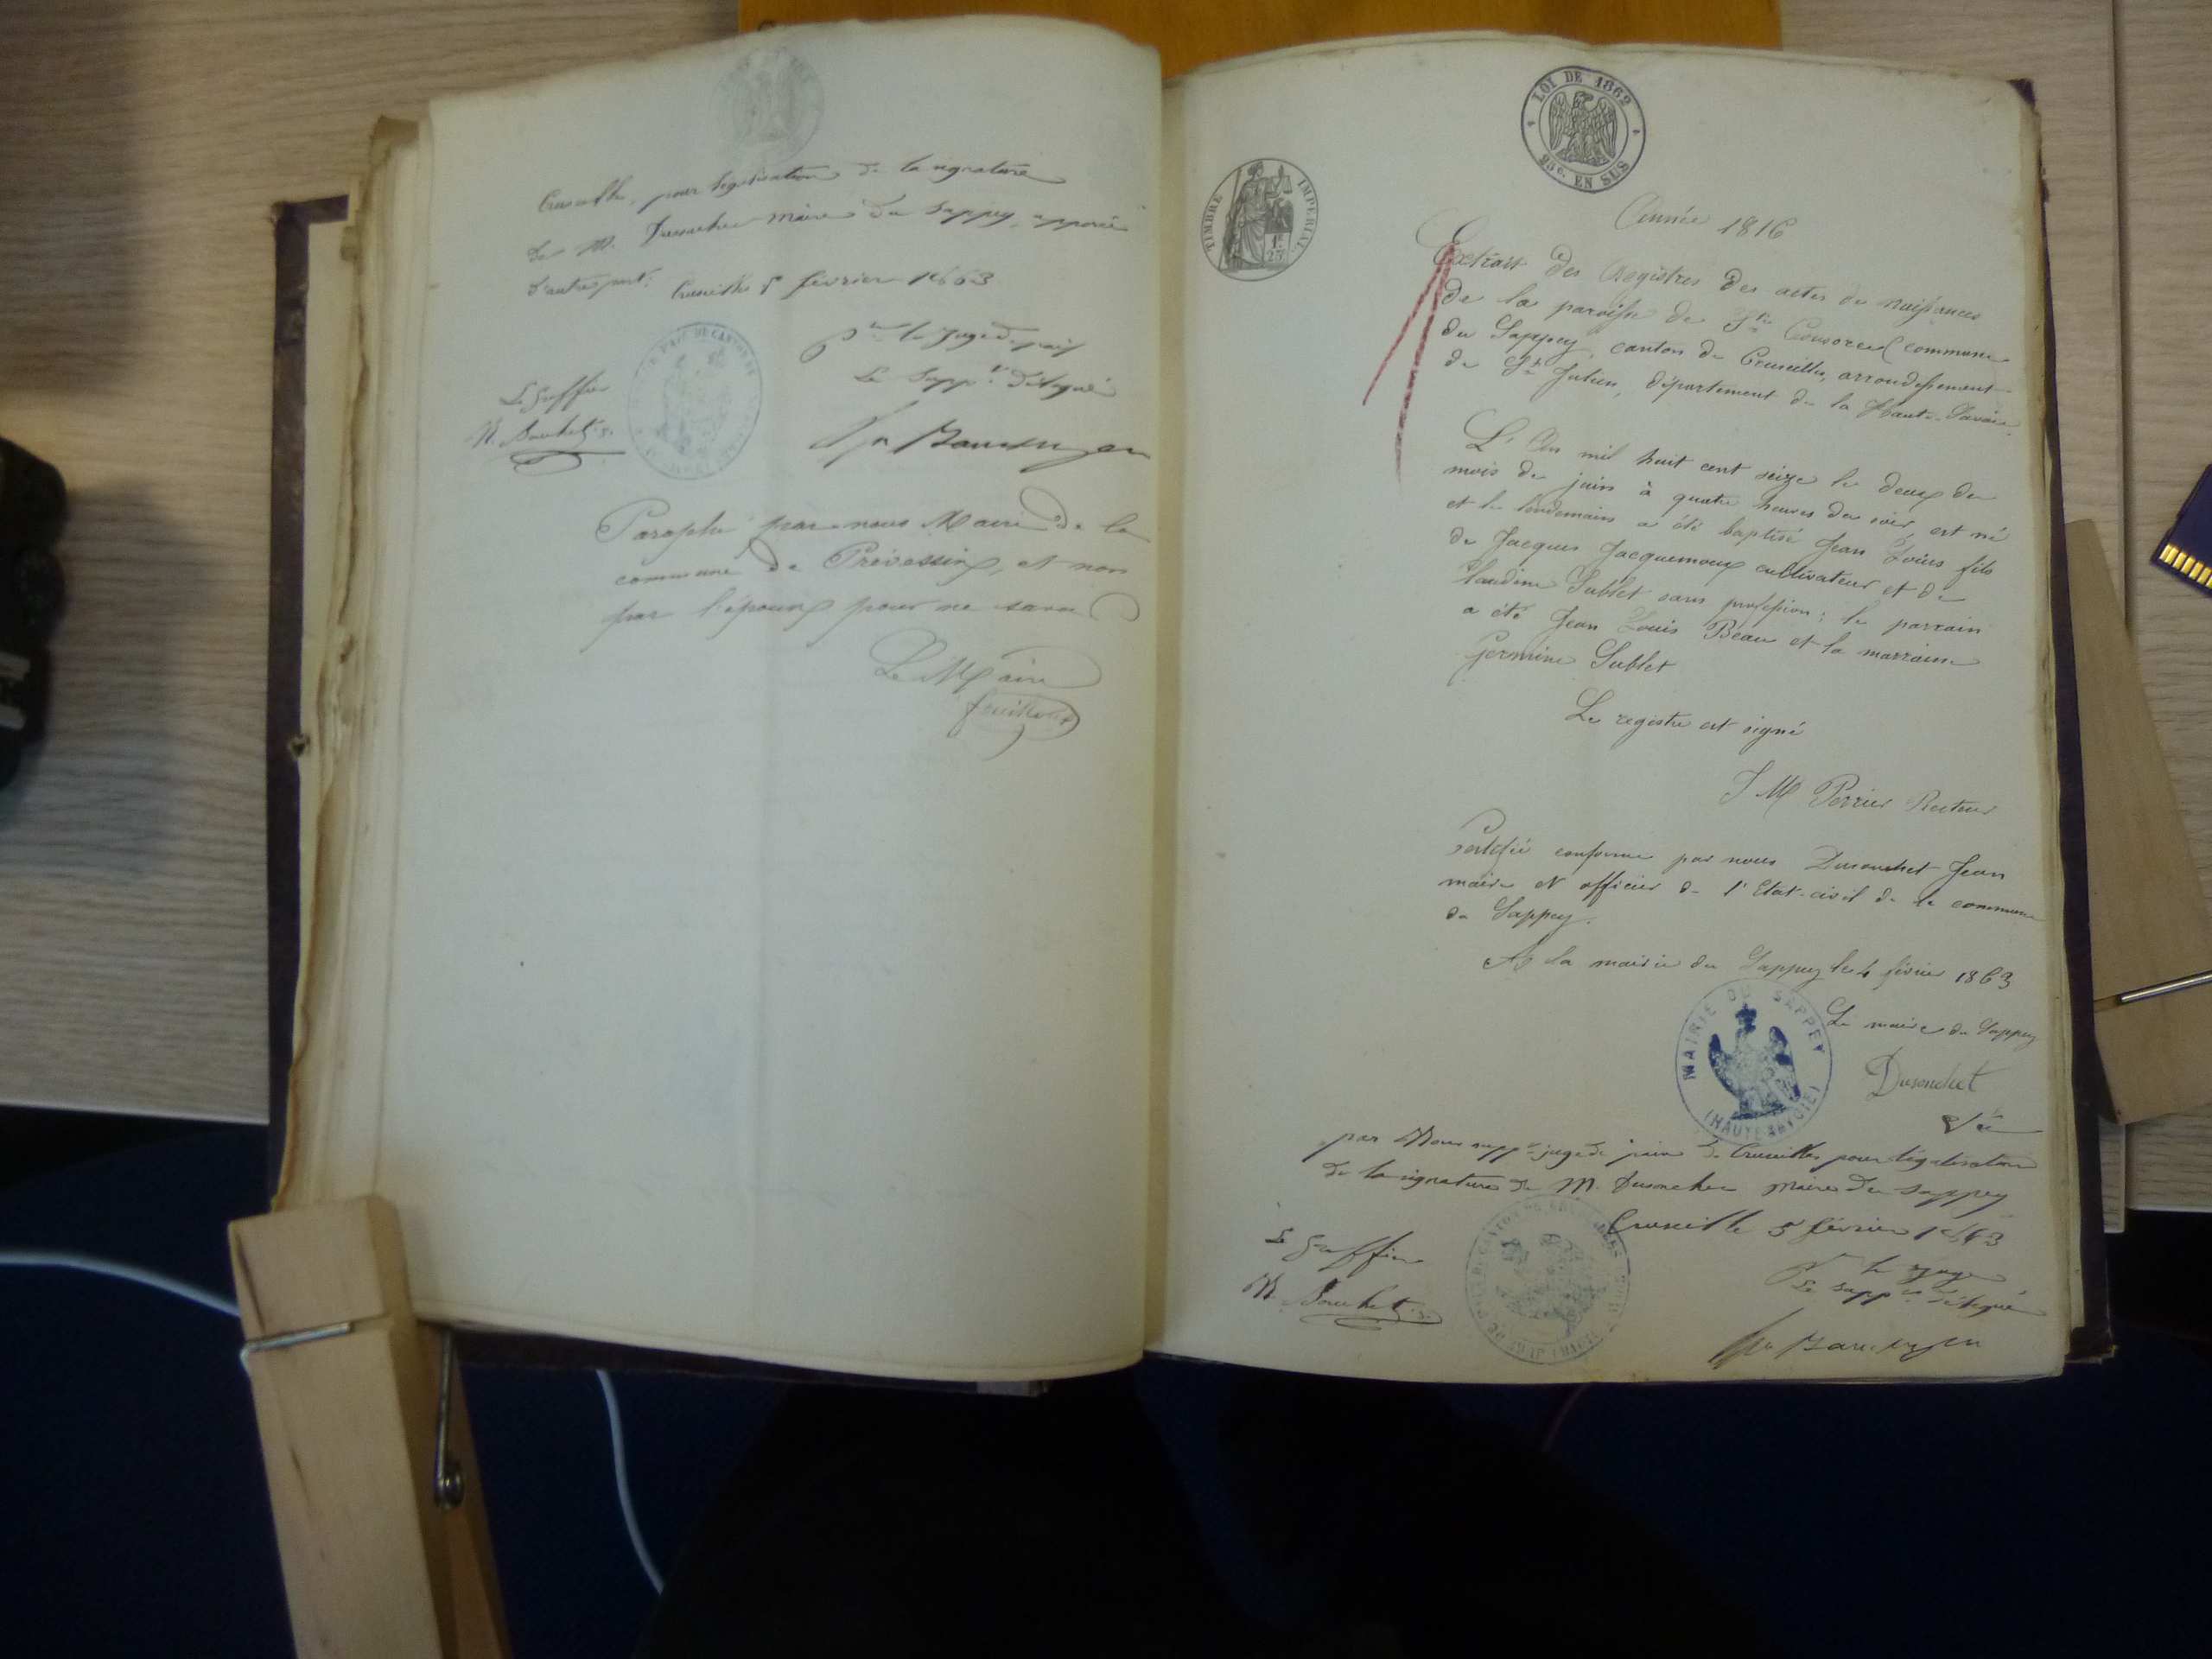 Cruseilles, pour légalisation de la signature
de M. Dusonchet Maire du Sappey, apposée
d'autre part. Cruseilles 5 février 1863
Pr le Juge de paix
Le Suppt délégué
Le Greffier
N. Bouchet
Paraphé par nous Maire de la
commune de Prévessin, et non
par l'époux pour ne savoir
Le Maire
LOI DE 1862
25c. EN SUS
TIMBRE IMPERIAL
1F
25c
Année 1816
Extrait des Registres des actes de naissances
de la paroisse de Ste Consorce (commune
du Sappey, canton de Cruseilles, arrondissement
de St Julien, département de la Haute-Savoie.
L'An mil huit cent seize le deux du
mois de juin à quatre heures du soir, est né
et le lendemain a été baptisé Jean Louis fils
de Jacques Jacquemoux cultivateur et de
Claudine Sublet sans profession; le parrain
a été Jean Louis Béau et la marraine
Germine Sublet
Le registre est signé
J M Perrier Recteur
Certifié conforme par nous Dusonchet Jean
maire et officier de l'Etat-civil de la commune
du Sappey.
A la mairie du Sappey le 4 février 1863
Le maire du Sappey
MAIRIE DU SAPPEY
(HAUTE SAVOIE)
Dusonchet
Vu
par Nous suppt juge de paix de Cruseilles pour légalisation
de la signature de M. Dusonchet Maire du Sappey
Cruseilles 5 février 1863
Pr le Juge
Le suppt délégué
Le Greffier
N. Bouchet